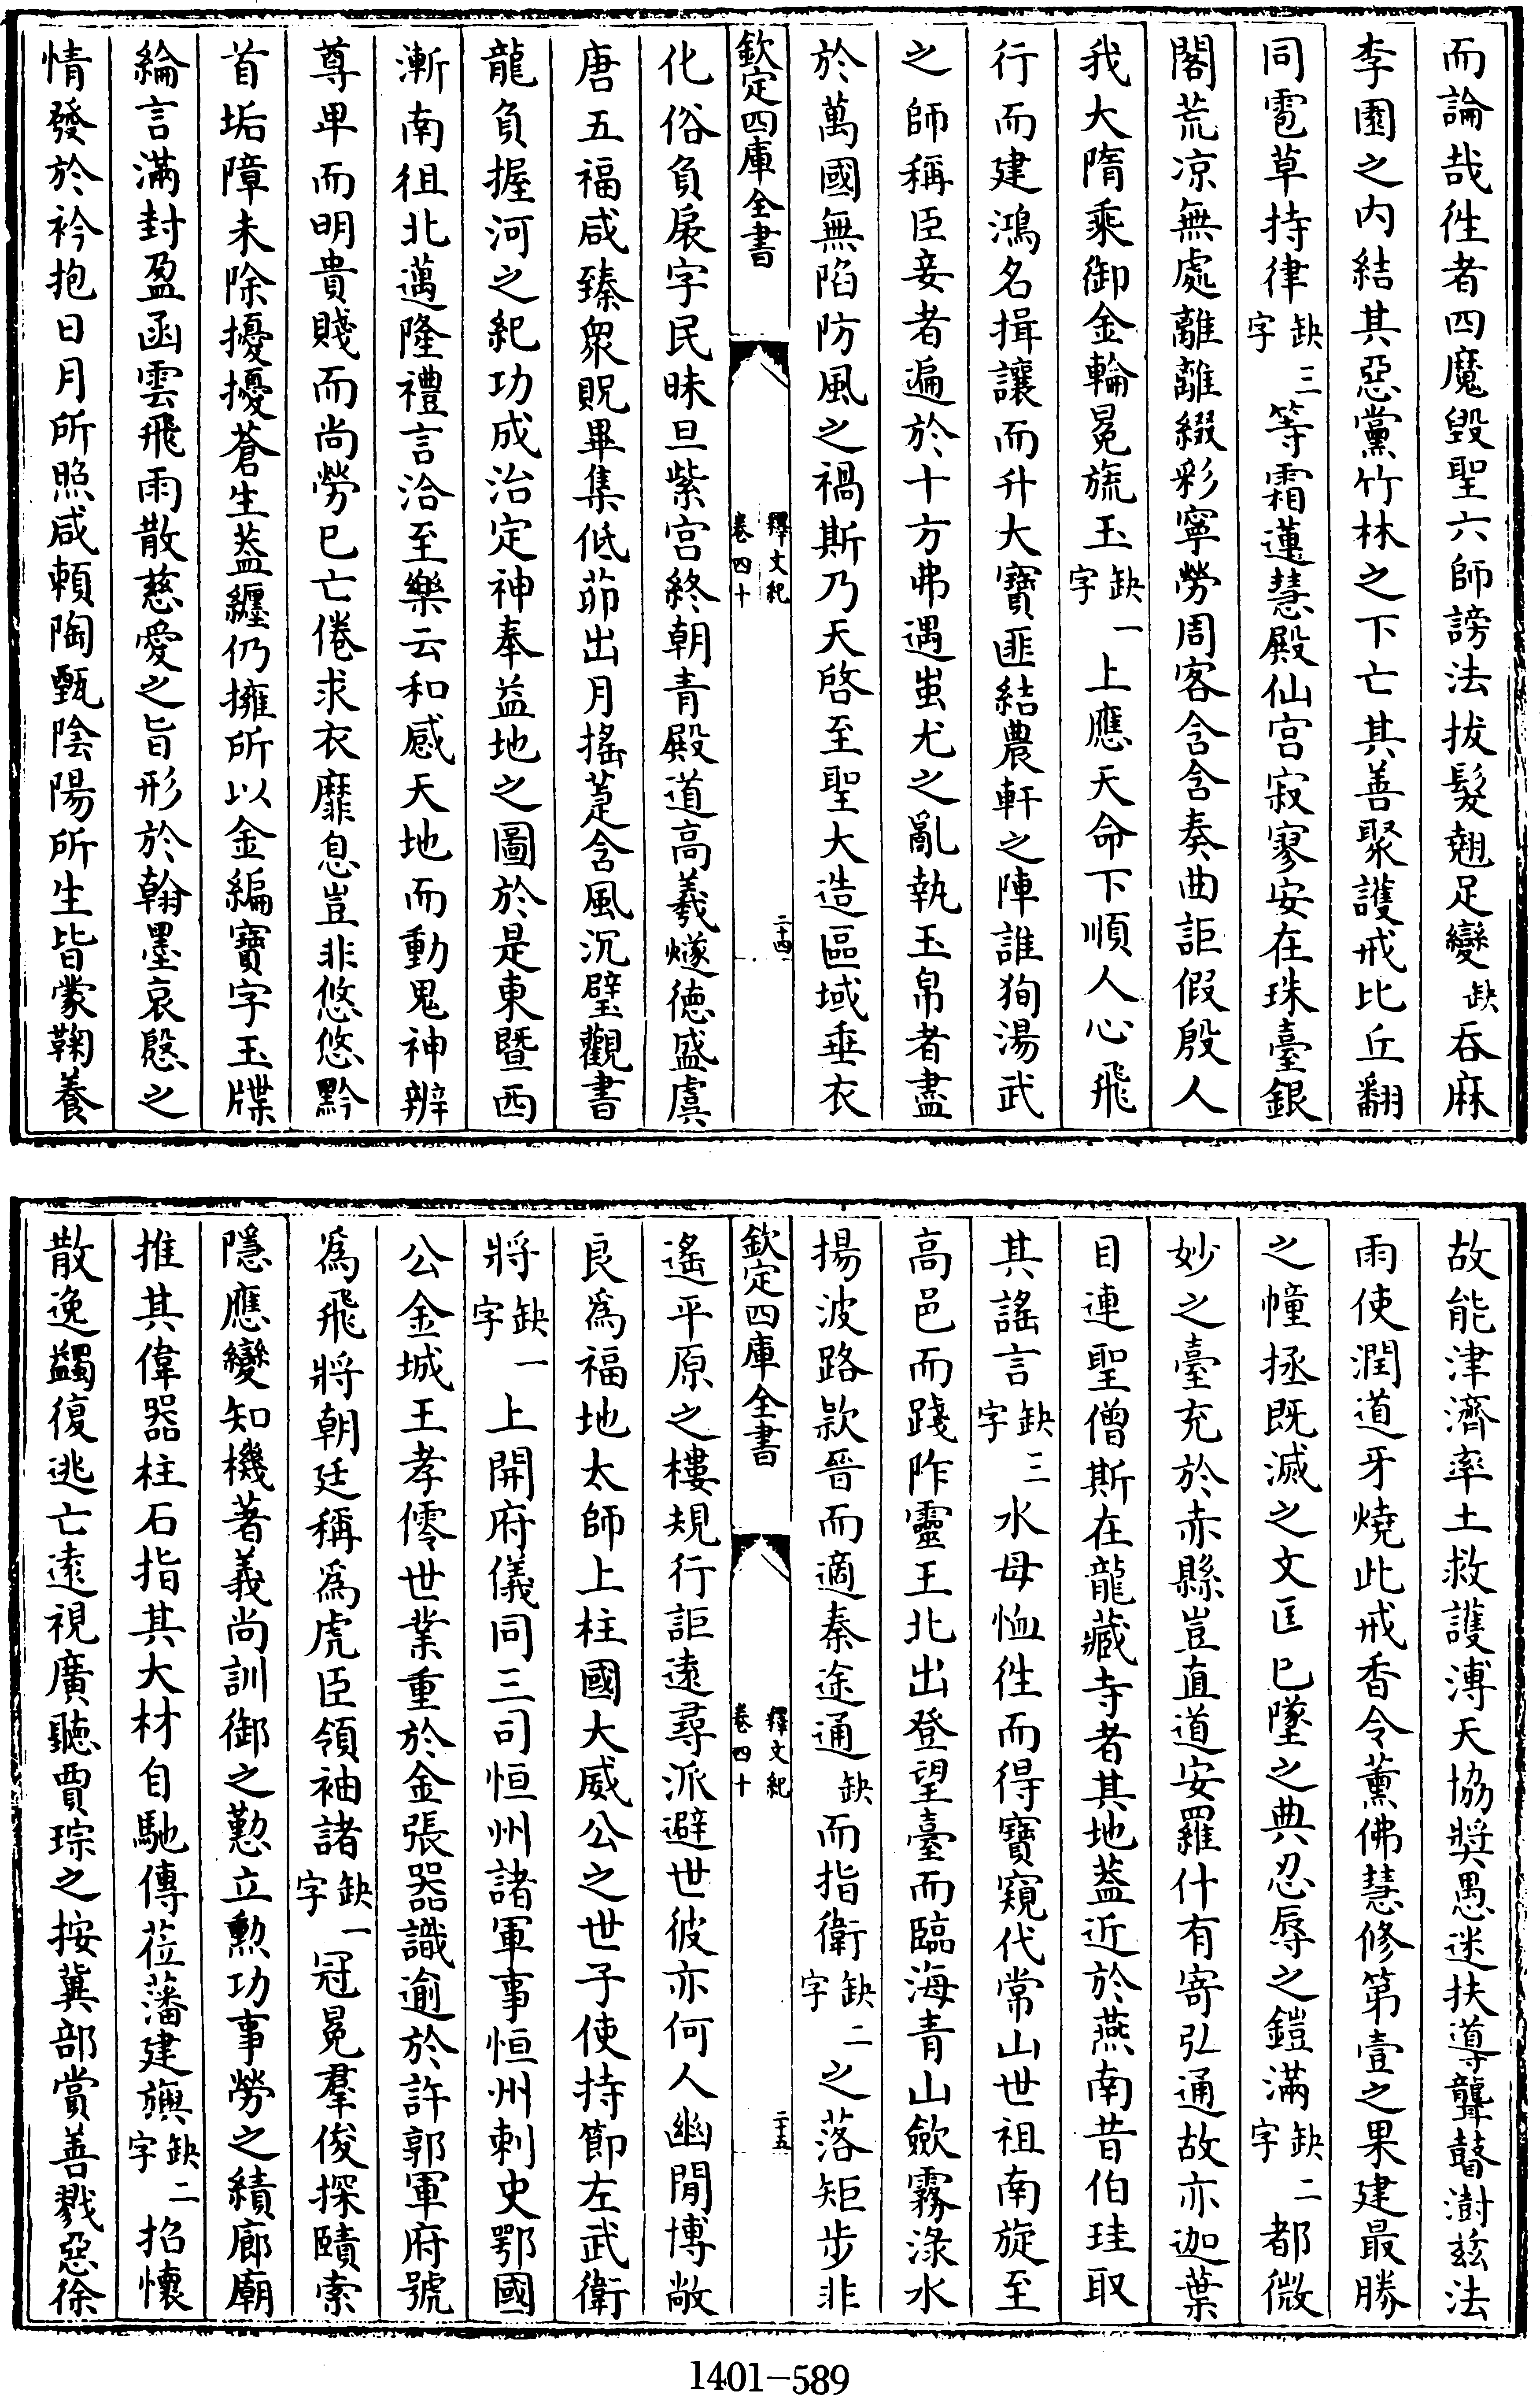 而論哉徃者四魔毀聖六師謗法拔髮翹足變缺吞麻
李園之内結其惡黨竹林之下亡其善聚護戒比丘翻
同雹草持律缺三字等霜蓮慧殿仙宫寂寥安在珠臺銀
閣荒凉無處離離綴彩寧勞周客含含奏曲詎假殷人
我大隋乘御金輪冕旒玉缺一字上應天命下順人心飛
行而建鴻名揖讓而升大寶匪結農軒之陣誰狥湯武
之師稱臣妾者遍於十方弗遇蚩尤之亂執玉帛者盡
於萬國無陷防風之禍斯乃天啓至聖大造區域垂衣
欽定四庫全書
釋文紀
卷四十
二十四
化俗負扆字民昧旦紫宫終朝青殿道高羲燧德盛虞
唐五福咸臻衆貺畢集低茆出月摇萐含風沉璧觀書
龍負握河之紀功成治定神奉益地之圖於是東暨西
漸南徂北邁隆禮言洽至樂云和感天地而動鬼神辨
尊卑而明貴賤而尚勞已亡倦求衣靡息豈非悠悠黔
首垢障未除擾擾蒼生葢纏仍擁所以金編寶字玉牒
綸言滿封盈函雲飛雨散慈愛之旨形於翰墨哀慇之
情發於衿抱日月所照咸頼陶甄陰陽所生皆蒙鞠養
故能津濟率土救護溥天協奬愚迷扶導聾瞽澍兹法
雨使潤道牙燒此戒香令薰佛慧修第壹之果建最勝
之幢拯既滅之文匡已墜之典忍辱之鎧滿缺二字都微
妙之臺充於赤縣豈直道安羅什有寄弘通故亦迦葉
目連聖僧斯在龍藏寺者其地葢近於燕南昔伯珪取
其謡言缺三字水母恤徃而得寶窺代常山世祖南旋至
高邑而踐阼靈王北出登望臺而臨海青山歛霧渌水
揚波路欵晉而適秦途通缺而指衛缺二字之落矩步非
欽定四庫全書
釋文紀
卷四十
二十五
遥平原之樓規行詎逺尋派避世彼亦何人幽閒博敞
良為福地太師上柱國大威公之世子使持節左武衛
將缺一字上開府儀同三司恒州諸軍事恒州刺史鄂國
公金城王孝僊世業重於金張器識逾於許郭軍府號
為飛將朝廷稱為虎臣領袖諸缺一字冠冕羣俊探賾索
隱應變知機著義尚訓御之懃立勲功事勞之績廊廟
推其偉器柱石指其大材自馳傳莅藩建旟缺二字招懷
散逸蠲復逃亡逺視廣聽賈琮之按冀部賞善戮惡徐
1401-589